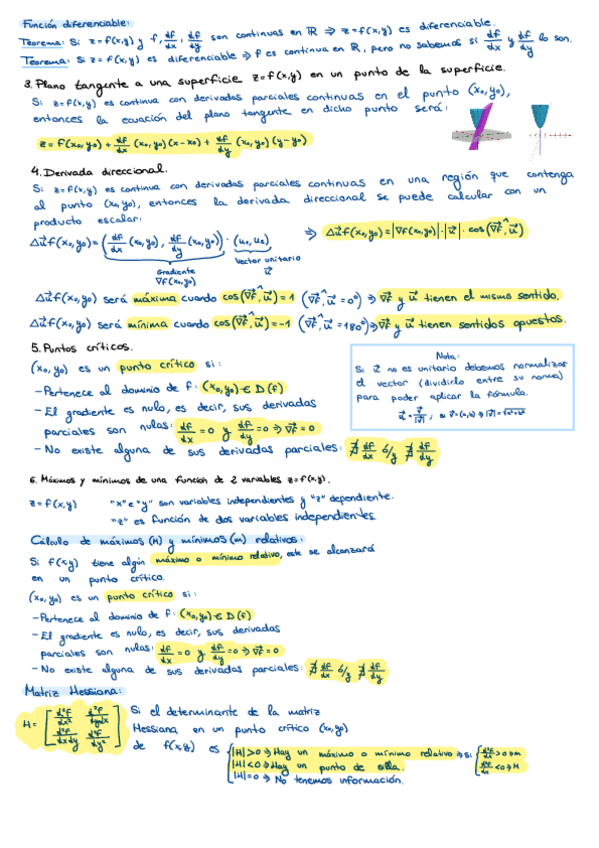 Función diferenciable:
Teorema: Si z=f(x,y) y f, df/dx, df/dy son continuas en ℝ ⇒ z=f(x,y) es diferenciable.
Teorema: Si z=f(x,y) es diferenciable ⇒ f es continua en ℝ, pero no sabemos si df/dx y df/dy lo son.
3. Plano tangente a una superficie z=f(x,y) en un punto de la superficie.
Si z=f(x,y) es continua con derivadas parciales continuas en el punto (x₀,y₀),
entonces la ecuación del plano tangente en dicho punto será:
z = f(x₀,y₀) + df/dx (x₀,y₀)(x-x₀) + df/dy (x₀,y₀)(y-y₀)
4. Derivada direccional.
Si z=f(x,y) es continua con derivadas parciales continuas en una región que contenga
al punto (x₀,y₀), entonces la derivada direccional se puede calcular con un
producto escalar:
Δu⃗f(x₀,y₀) = (df/dx (x₀,y₀), df/dy (x₀,y₀)) · (u₁,u₂) ⇒ Δu⃗f(x₀,y₀) = |∇f(x₀,y₀)| · |u⃗| · cos(∇f,u⃗)
Gradiente ∇f(x₀,y₀)
Vector unitario u⃗
Δu⃗f(x₀,y₀) será máxima cuando cos(∇f,u⃗)=1 (∇f,u⃗=0º) ⇒ ∇f y u⃗ tienen el mismo sentido.
Δu⃗f(x₀,y₀) será mínima cuando cos(∇f,u⃗)=-1 (∇f,u⃗=180º) ⇒ ∇f y u⃗ tienen sentidos opuestos.
5. Puntos críticos.
(x₀,y₀) es un punto crítico si:
- Pertenece al dominio de f: (x₀,y₀) ∈ D(f)
- El gradiente es nulo, es decir, sus derivadas
parciales son nulas: df/dx = 0 y df/dy = 0 ⇒ ∇f = 0
- No existe alguna de sus derivadas parciales: ∄ df/dx ó/y ∄ df/dy
Nota:
Si u⃗ no es unitario debemos normalizar
el vector (dividirlo entre su norma)
para poder aplicar la fórmula.
6. Máximos y mínimos de una función de 2 variables z=f(x,y).
z=f(x,y) "x" e "y" son variables independientes y "z" dependiente.
"z" es función de dos variables independientes.
Cálculo de máximos (M) y mínimos (m) relativos:
Si f(x,y) tiene algún máximo o mínimo relativo, este se alcanzará
en un punto crítico.
(x₀,y₀) es un punto crítico si:
- Pertenece al dominio de f: (x₀,y₀) ∈ D(f)
- El gradiente es nulo, es decir, sus derivadas
parciales son nulas: df/dx = 0 y df/dy = 0 ⇒ ∇f = 0
- No existe alguna de sus derivadas parciales: ∄ df/dx ó/y ∄ df/dy
Matriz Hessiana:
H = [d²f/dx² d²f/dydx; d²f/dxdy d²f/dy²]
Si el determinante de la matriz
Hessiana en un punto crítico (x₀,y₀)
de f(x,y) es
|H|>0 ⇒ Hay un máximo o mínimo relativo ⇒ Si
|H|<0 ⇒ Hay un punto de silla.
|H|=0 ⇒ No tenemos información.